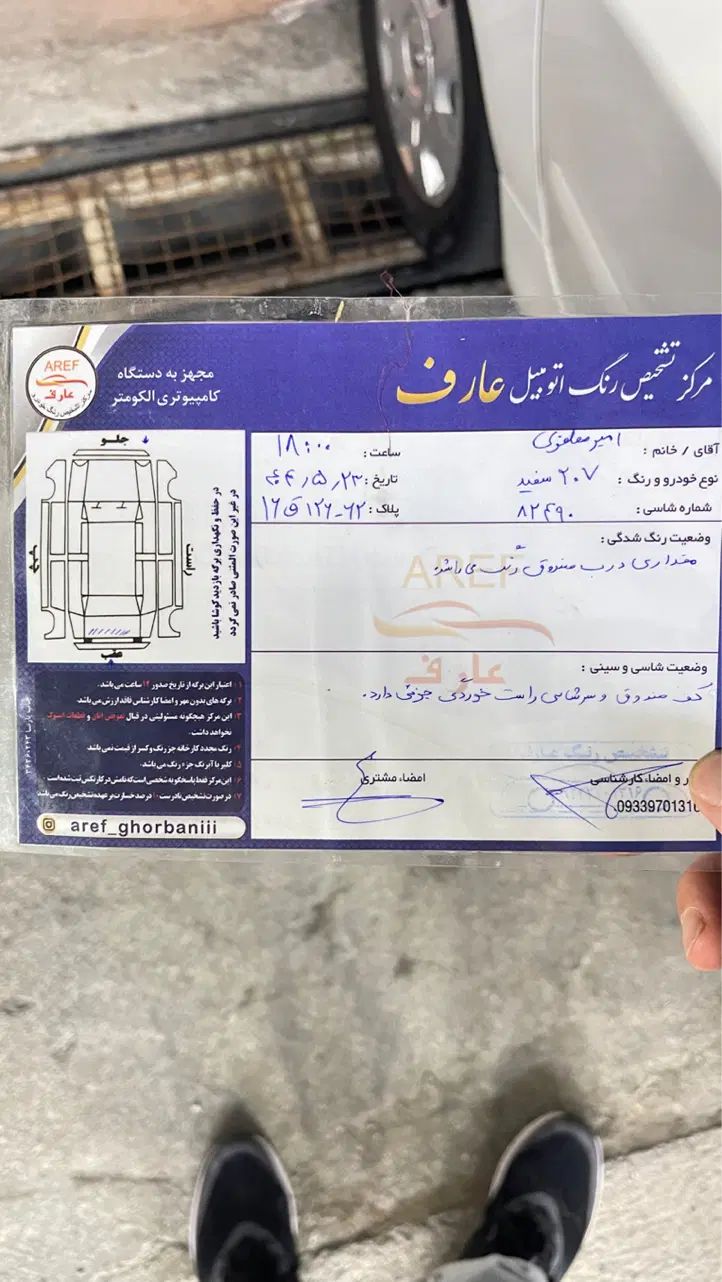 مرکز تشخیص رنگ اتومبیل عارف
مجهز به دستگاه
کامپیوتری الکومتر
AREF
عارف
مرکز تشخیص رنگ خودرو
آقای / خانم :
امیر
ساعت :
۱۸:۰۰
نوع خودرو و رنگ :
۲۰۷ سفید
تاریخ :
۰۴٫۵٫۲۳
شماره شاسی :
۸۲۴۹۰
پلاک :
۶۲-۱۲۶ ق ۱۶
وضعیت رنگ شدگی :
مقداری درب صندوق رنگ می باشد.
AREF
عارف
وضعیت شاسی و سینی :
کف صندوق و سرشاسی راست خوردگی جزئی دارد.
مهر و امضاء کارشناسی
امضاء مشتری
تشخیص رنگ عارف
0933970131
جلو
راست
چپ
عقب
در حفظ و نگهداری برگه بازدید کوشا باشید
در غیر این صورت المثنی صادر نمی گردد
۱ : اعتبار این برگه از تاریخ صدور ۱۲ ساعت می باشد.
۲ : برگه های بدون مهر و امضا کارشناس فاقد ارزش می باشد.
۳ : این مرکز هیچگونه مسئولیتی در قبال تعویض اتاق و قطعات استوک
نخواهد داشت.
۴ : رنگ مجدد کارخانه جز رنگ و کسر از قیمت نمی باشد
۵ : کلیر یا آبرنگ جزء رنگ می باشد.
۶ : این مرکز فقط پاسخگو به شخصی است که نامش در کارتکس ثبت شده است
۷ : در صورت تشخیص نادرست ۱۰ درصد خسارت بر عهده تشخیص رنگ می باشد
aref_ghorbaniii